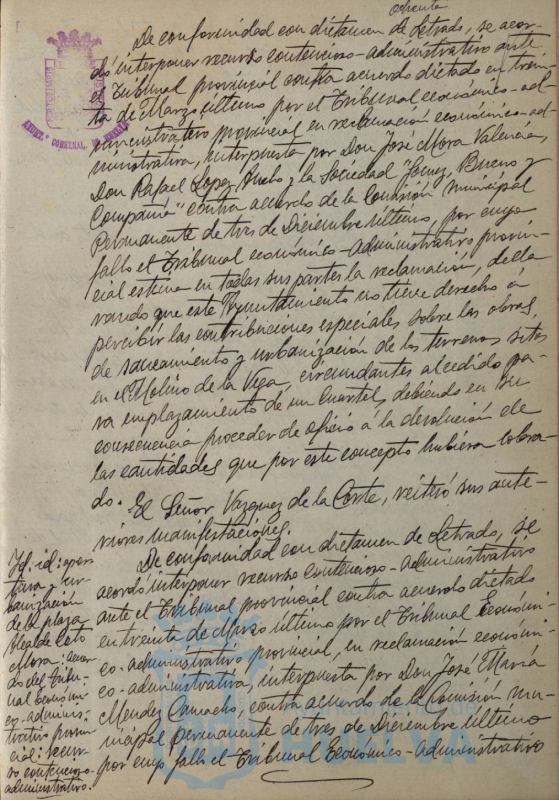 ochenta
De conformidad con dictamen de Letrado, se acor-
dó interponer recurso contencioso-administrativo ante
el Tribunal provincial contra acuerdo dictado en trein-
ta de Marzo último por el Tribunal económico-ad-
ministrativo provincial, en reclamación económico-ad-
ministrativa, interpuesta por Don José Mora Valencia,
Don Rafael López y la Sociedad "Gomez, Bueno y
Compañía" contra acuerdo de la Comisión Municipal
Permanente de tres de Diciembre último, por cuyo
fallo el Tribunal económico-administrativo provin-
cial estima en todas sus partes la reclamación, decla-
rando que este Ayuntamiento no tiene derecho á
percibir las contribuciones especiales sobre las obras
de saneamiento y urbanización de los terrenos sitos
en el Molino de la Vega, circundantes al cedido pa-
ra emplazamiento de un Cuartel, debiendo en su
consecuencia proceder de oficio á la devolución de
las cantidades que por este concepto hubiera cobra-
do.
El Señor Vazquez de la Corte, reiteró sus ante-
riores manifestaciones.
De conformidad con dictamen de Letrado, se
acordó interponer recurso contencioso-administrativo
ante el Tribunal provincial contra acuerdo dictado
en treinta de Marzo último por el Tribunal Económi-
co-administrativo provincial, en reclamación económi-
co-administrativa, interpuesta por Don José María
Mendez Camacho, contra acuerdo de la Comisión mu-
nicipal permanente de tres de Diciembre último
por cuyo fallo el Tribunal Económico-administrativo
Id. id: aper
tura y ur-
banización
de la plaza
Alcalde Coto
Mora: acuer
do del Tribu-
nal Económi-
co-adminis-
trativo provin
cial: recur-
so contencioso-
administrativo.